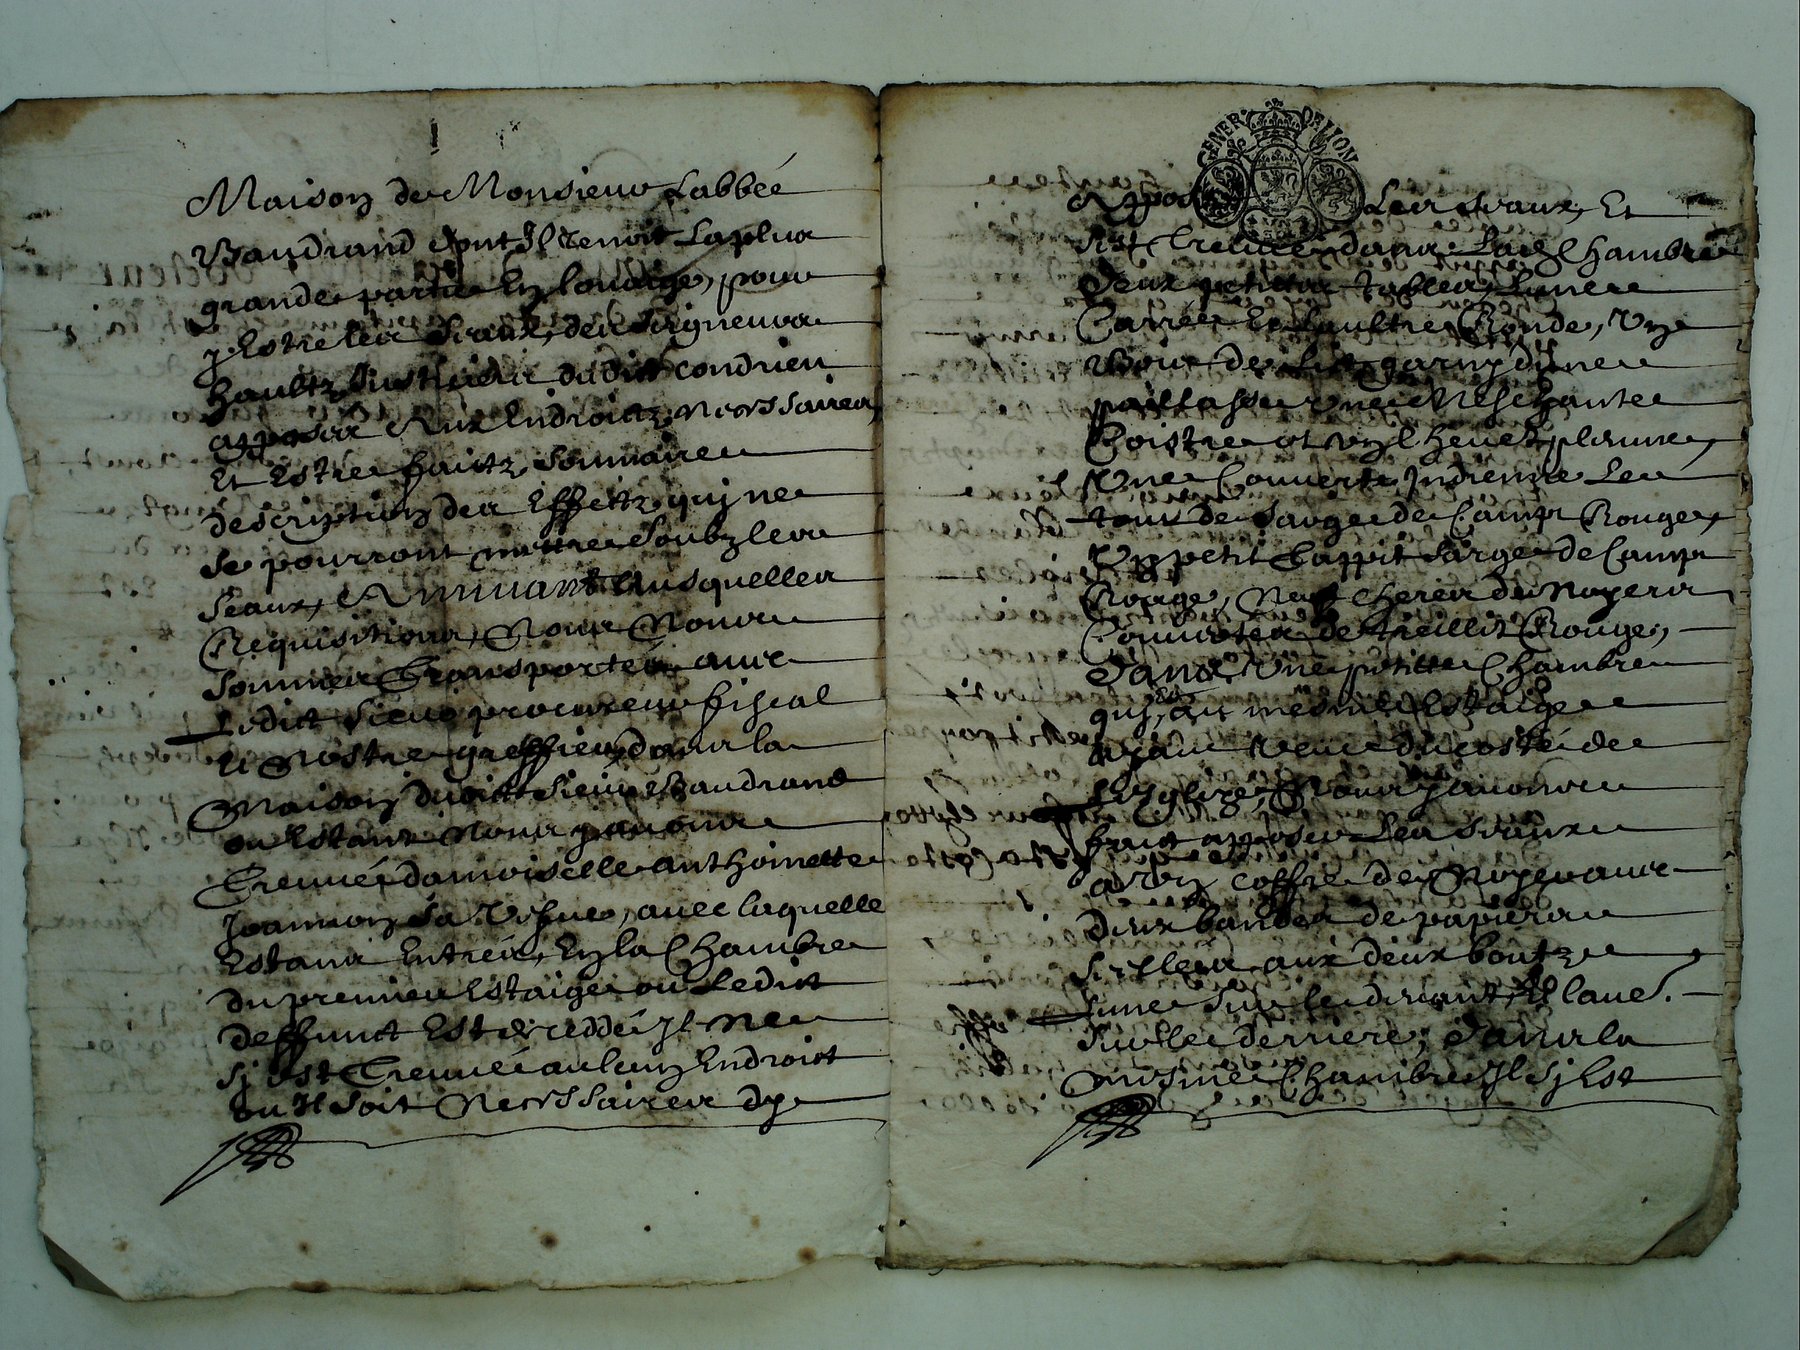 Maison de Monsieur Labbée
Baudrand dont Il tenoit La plus
grande partie En Louaige, pour
y Estre les Seaux, des Seigneurs
haultz Justiciers dudict Condrieu
apposés Aux Endroictz necessaires
Et Estre faictz Sommaire
description des Effectz quj ne
se pourront mettre Soubz les
Seaux, Auxquelles
Requisitions, Nous Nous
sommes Transportés avec
Ledict Sieur procureur fiscal
Et Nostre greffier, dans la
Maison dudict Sieur Baudrand
ou Estant Nous y avons
Treuvé damoiselle anthoinette
Joannon Sa Vefve, avec laquelle
Estans Entrés, En la Chambre
du premier Estaige ou Ledict
deffunct Est decedde Il ne
sj est Treuvé aulcun Endroict
ou Il soit Necessaires dy
GENER DE LYON
Appos Les Seaux, Et
sest Treuvé dans Lad Chambre
deux petittes tables, Lune
Carrée Et Laultre Ronde, Un
Bois de Lict garny dune
paillasse Une Meschante
Coistre et un Chevet plume,
Une Couverte Indienne Le
tour de Sarge de Camp Rouge,
Un petit Tappit Sarge de Camp
Rouge, Neuf cheres de Noyer
Couvertes de treillis Rouge,
Dans Une petitte Chambre
quj au mesme Estaige
ayant Veue du costé de
LEglize, Nous y avons
faict apposer Les Seaux
a Un coffre de Noyer avec
deux bandes de papier
Scellées aux deux boutz
Lune Sur le devant, Et Laue.
Sur le derriere, dans la
mesme Chambre Il sj Est